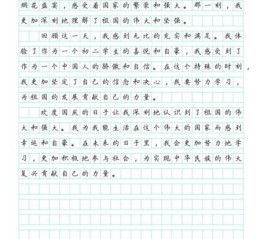 烟花盛宴，感受着国家的繁荣和强大。那一刻，我
更加深刻地理解了祖国的伟大和坚强。
回顾这一天，我感到无比的充实和满足。我体
验了作为一个初二学生的喜悦和自豪，我感受到了
作为一个中国人的骄傲和自信。在这个特殊的时刻，
我更加坚定了自己的信念和决心，我要努力学习，
为祖国的发展贡献自己的力量。
欢度国庆的日子让我深刻地认识到了祖国的伟
大和强大。我为我能生活在这个伟大的国家而感到
幸运和自豪。在未来的日子里，我会更加努力地学
习，更加积极地参与社会，为实现中华民族的伟大
复兴贡献自己的力量。